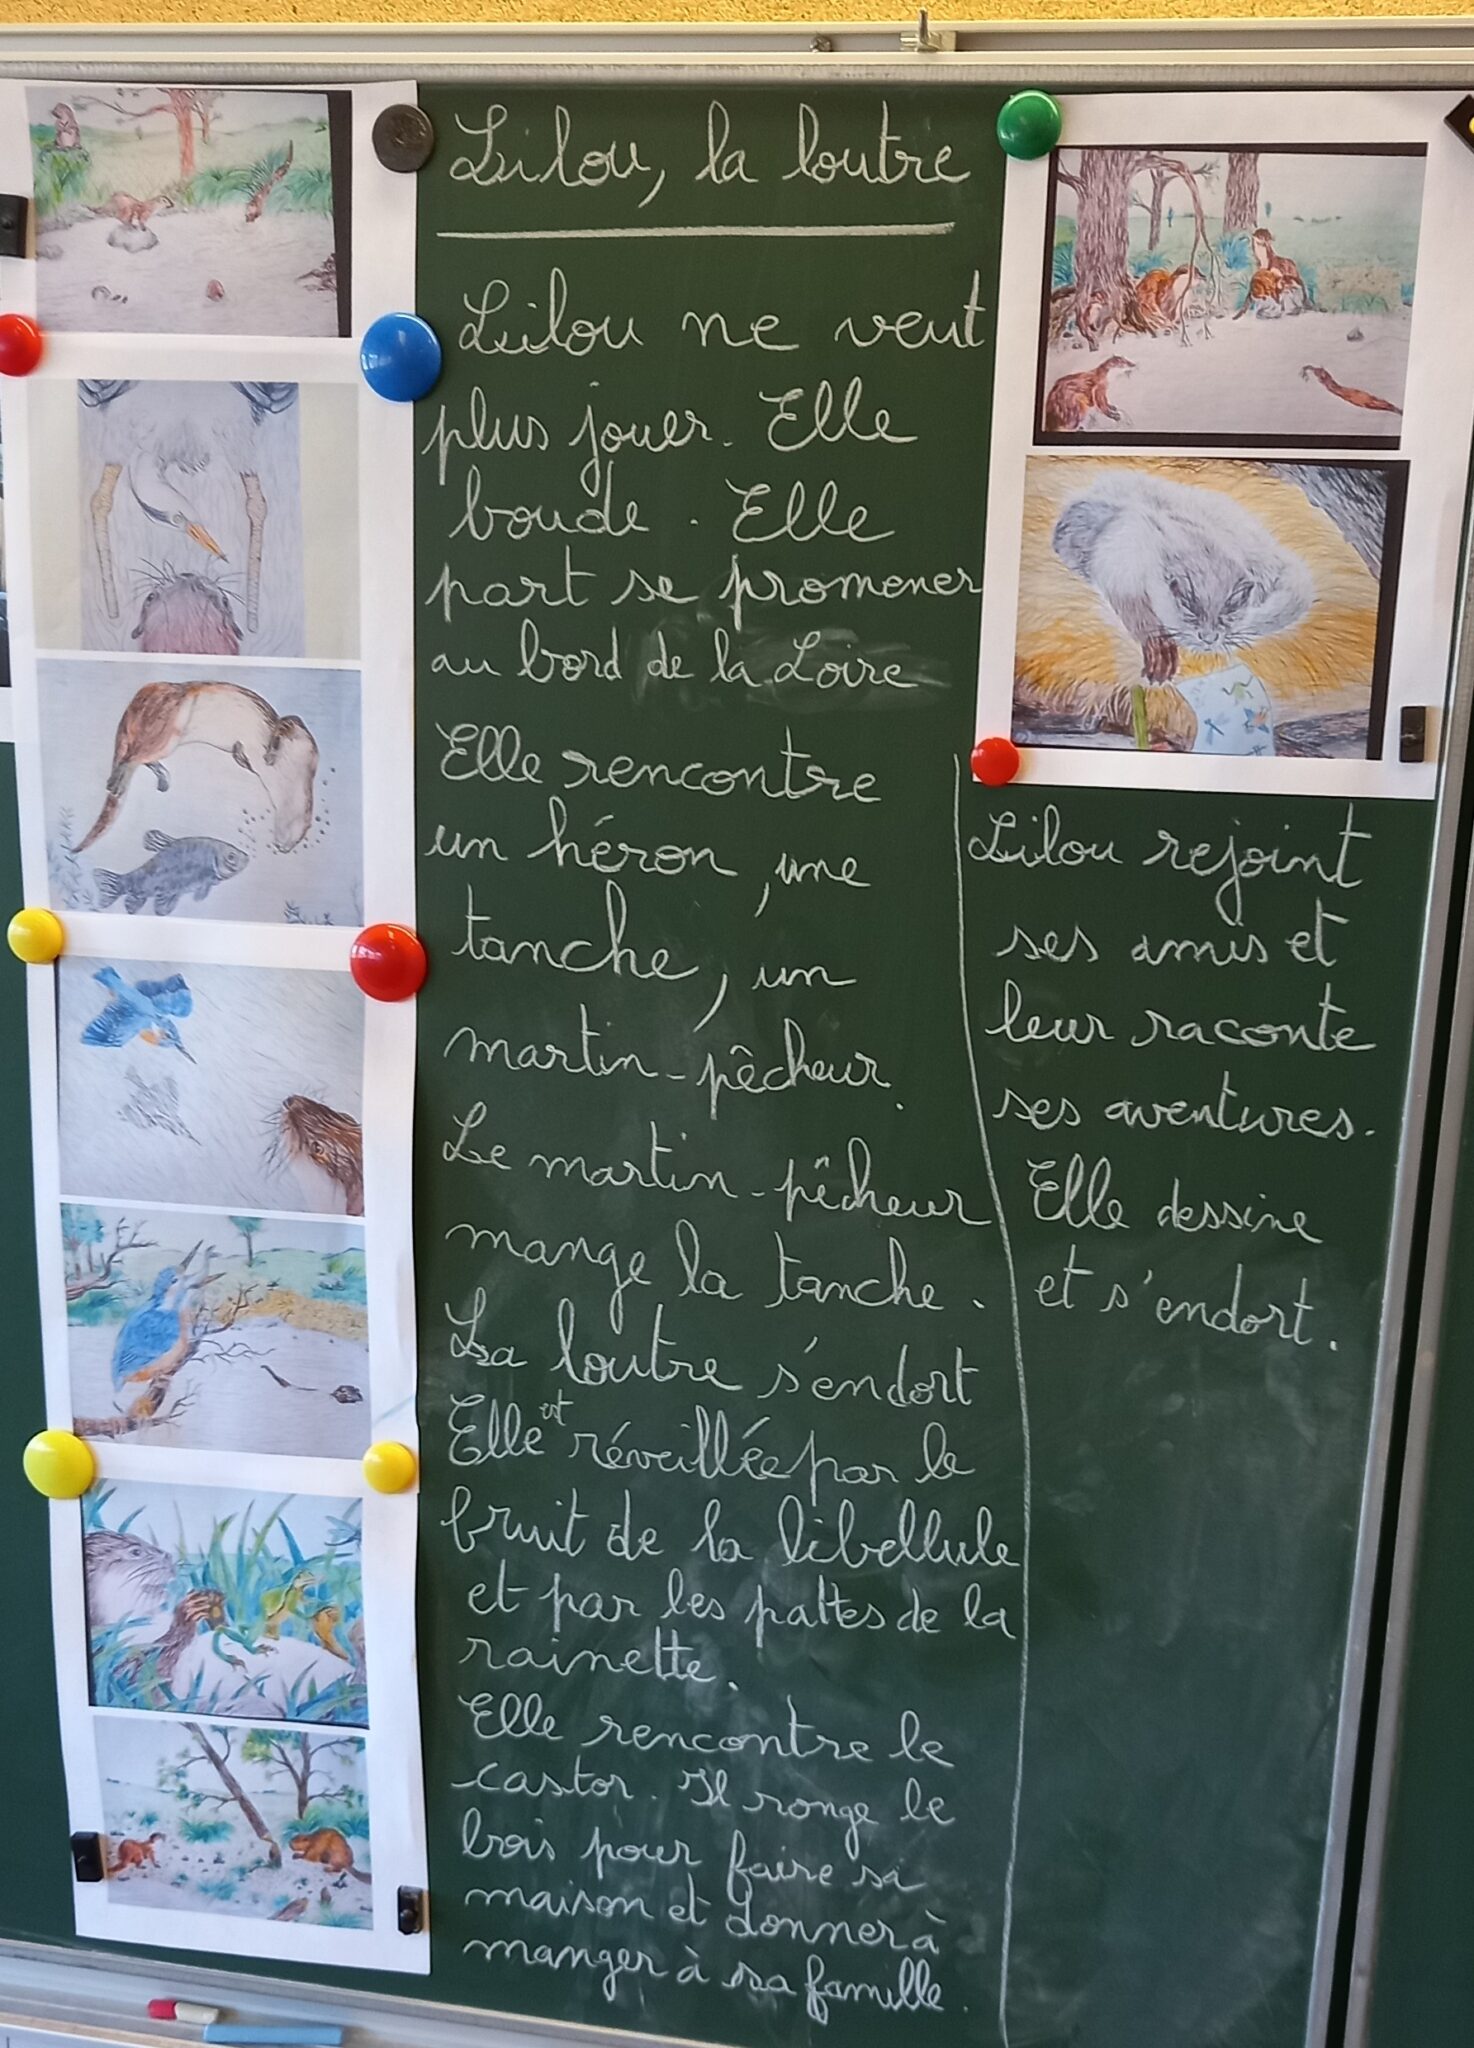 Lilou, la loutre
Lilou ne veut
plus jouer. Elle
boude. Elle
part se promener
au bord de la Loire
Elle rencontre
un héron, une
tanche, un
martin-pêcheur.
Le martin-pêcheur
mange la tanche.
La loutre s'endort
Elle est réveillée par le
bruit de la libellule
et par les pattes de la
rainette.
Elle rencontre le
castor. Il ronge le
bois pour faire sa
maison et donner à
manger à sa famille.
Lilou rejoint
ses amis et
leur raconte
ses aventures.
Elle dessine
et s'endort.